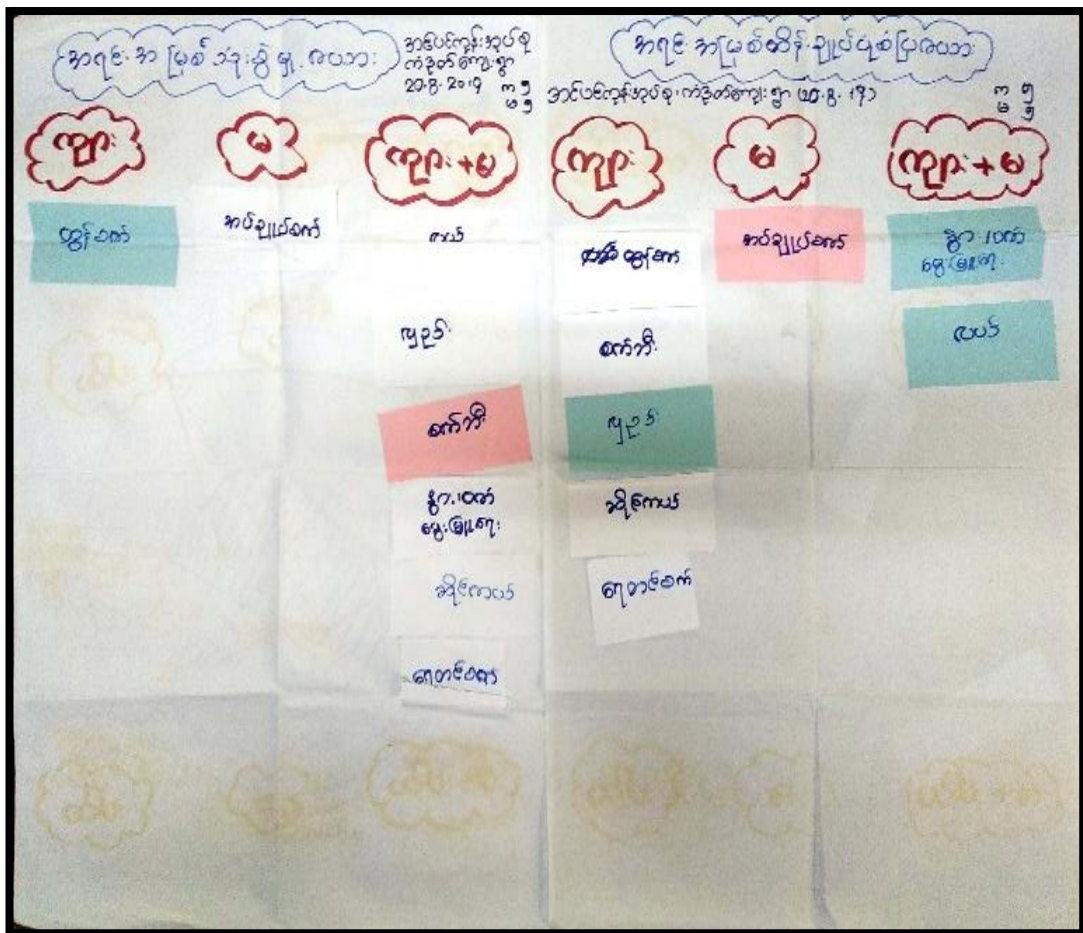 အရင်းအမြစ်သုံးစွဲမှုဇယား
အင်ပင်ကုန်းအုပ်စု
ကံဒွတ်ကျေးရွာ
20.8.2019
ကျ ၅
မ ၅
ကျား
မ
ကျား + မ
ထွန်စက်
အပ်ချုပ်စက်
လယ်
လှည်း
စက်ဘီး
နွား၊ဝက်
မွေးမြူရေး
ဆိုင်ကယ်
ရေတင်စက်
အရင်းအမြစ်ထိန်းချုပ်ပုံစံပြဇယား
အင်ပင်ကုန်းအုပ်စု၊ကံဒွတ်ကျေးရွာ
ကျ ၅
မ ၅
ကျား
မ
ကျား + မ
ထွန်စက်
စက်ဘီး
လှည်း
ဆိုင်ကယ်
ရေတင်စက်
အပ်ချုပ်စက်
နွား၊ဝက်
မွေးမြူရေး
လယ်